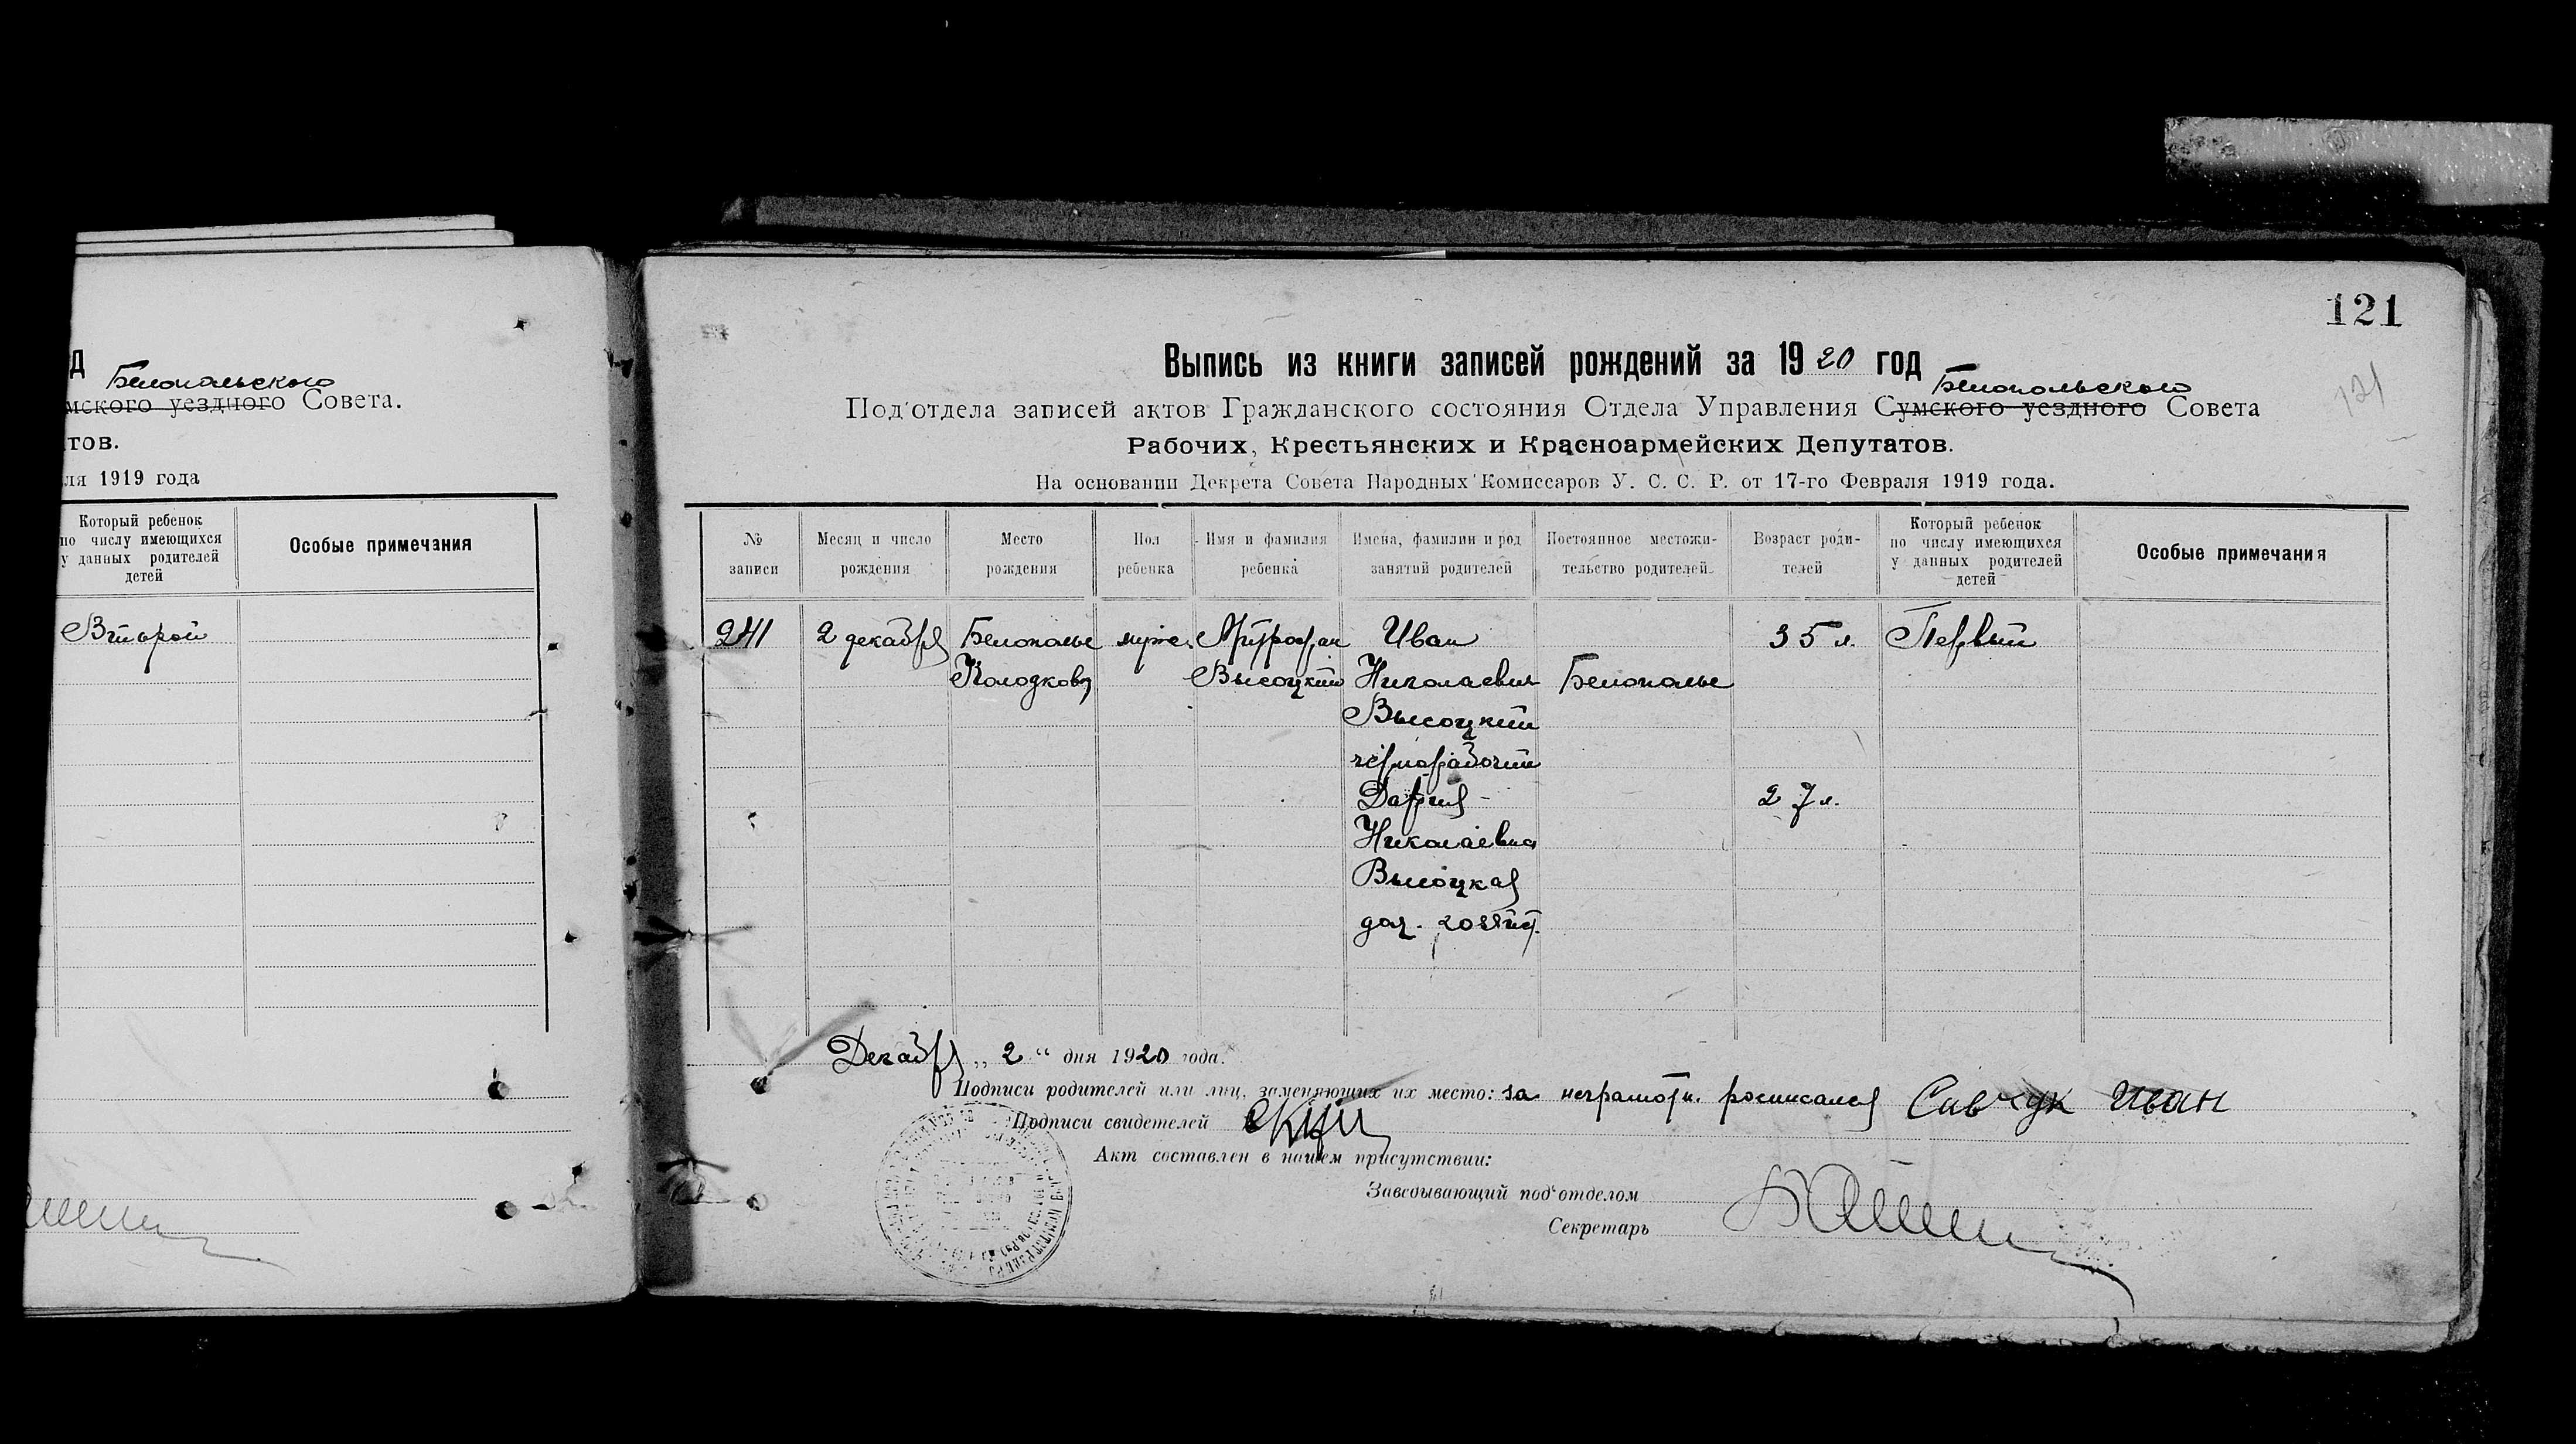 д
Белопольского
мского уездного Совета.
тов.
ля 1919 года
Который ребенок
по числу имеющихся
у данных родителей
детей
Особые примечания
Второй
121
121
Выпись из книги записей рождений за 1920 год
Белопольского
Под'отдела записей актов Гражданского состояния Отдела Управления Сумского уездного Совета
Рабочих, Крестьянских и Красноармейских Депутатов.
На основании Декрета Совета Народных Комиссаров У. С. С. Р. от 17-го Февраля 1919 года.
№
записи
Месяц и число
рождения
Место
рождения
Пол
ребенка
Имя и фамилия
ребенка
Имена, фамилии и род
занятий родителей
Постоянное местожи-
тельство родителей
Возраст роди-
телей
Который ребенок
по числу имеющихся
у данных родителей
детей
Особые примечания
241 2 декабря Белополье муж. Митрофан Иван 35 л. Первый
Высоцкий Николаевич Белополье
Высоцкий
чернорабочий
Дария 27 л.
Николаевна
Высоцкая
Декабря „ 2 “ дня 1920 года.
Подписи родителей или лиц, заменяющих их место: за неграмотн. росписался Савчук Иван
Подписи свидетелей
Акт составлен в нашем присутствии:
Заведывающий под'отделом
Секретарь